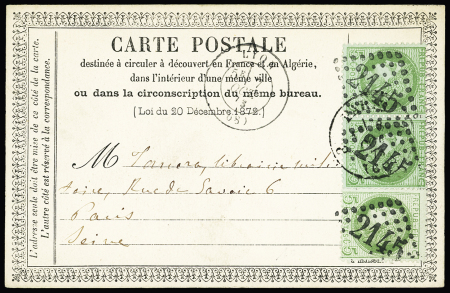 CARTE POSTALE
destinée à circuler à découvert en France et en Algérie,
dans l'intérieur d'une même ville
ou dans la circonscription du même bureau.
[Loi du 20 Décembre 1872.]
L'adresse seule doit être mise de ce côté de la carte.
L'autre côté est réservé à la correspondance.
M Tanera, libraire mili
taire, Rue de Savoie 6
Paris
Seine
2145
2145
2145
5